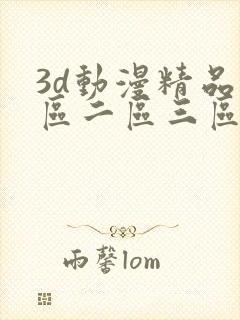 3d動漫精品
區二區三區
雨馨lom